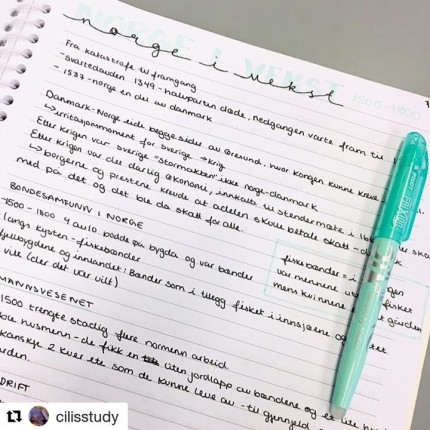 norge i vekst
NORGE I VEKST
1500-1800
Fra katastrofe til framgang
-svartedauden 1349 - halvparten døde, nedgangen varte fram til
- 1537 - norge en del av danmark
Danmark-Norge eide begge sider av Øresund, hvor kongen kunne kreve
↳ irritasjonsmoment for Sverige → krig
Etter krigen var Sverige "stormakten" ikke norge-danmark
Etter krigen var det dårlig økonomi, innkalls til stendermøte i
↳ borgerne og prestene krevde at adelen skulle betale skatt - de
med på det og det ble da skatt for alle.
BONDESAMFUNN I NORGE
-1500-1800 9 av 10 bodde på bygda og var bønder
langs kysten - fiskebønder
fjellbygdene og innlandet: Bønder som i tillegg fisket i innsjøene og
vilt (der det var vilt)
fiskebønder = i
var mennene ute og fisket
mens kvinnene gården
MANNSVESENET
1500 trengte stadig flere nordmenn arbeid.
ble husmenn - de fikk en liten jordlapp av bøndene og et lite hus
kanskje 2 kuer etc som de kunne leve av - til gjengjeld
DRIFT
PILOT
FRIXION
cilisstudy